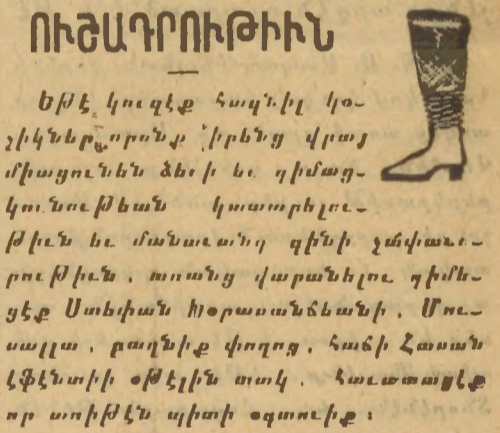 ՈՒՇԱԴՐՈՒԹԻՒՆ
Եթէ կուզէք հագնիլ կօ-
շիկներ որոնք իրենց վրայ
միացունեն ձեւի եւ դիմաց-
կունութեան կատարելու-
թիւն եւ մանաւանդ գինի չափաւո-
րութիւն, առանց վարանելու դիմե-
ցէք Ստեփան Խօրասանճեանի, Մու-
սալլա, բաղնիք փողոց, Հաճի Հասան
էֆէնտիի օթէլին տակ, Հաւատացէք
որ առիթէն պիտի օգտուիք։